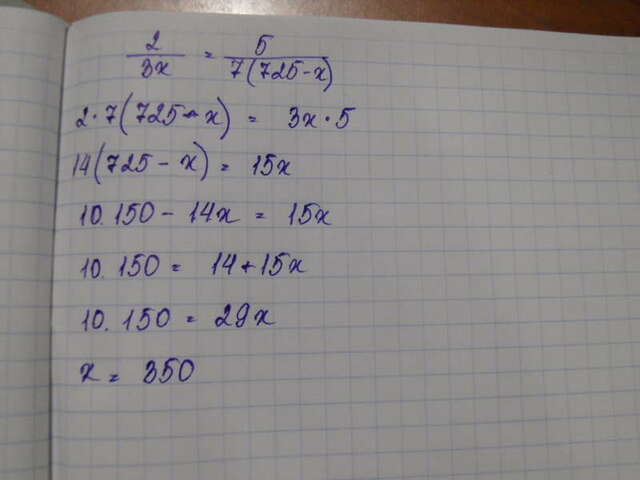 2/3x = 5/7(725-x)
2·7(725-x) = 3x·5
14(725-x) = 15x
10.150 - 14x = 15x
10.150 = 14+15x
10.150 = 29x
x = 350